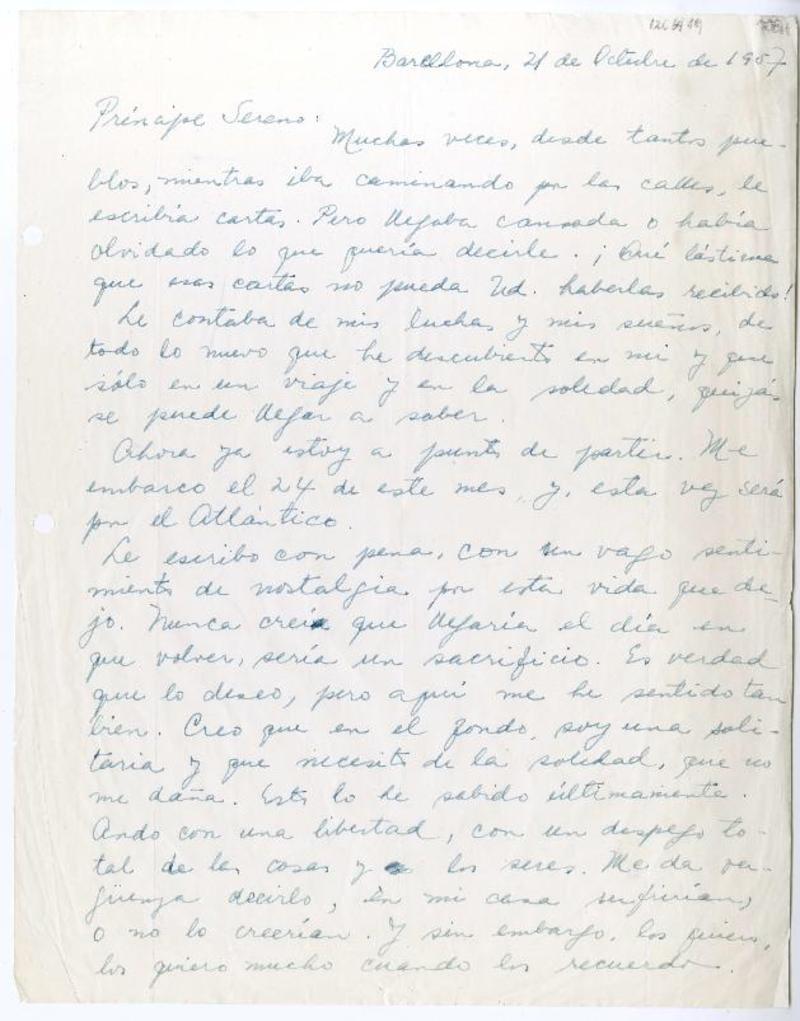 Barcelona, 21 de Octubre de 1957
Príncipe Sereno:
Muchas veces, desde tantos pue-
blos, mientras iba caminando por las calles, le
escribía cartas. Pero llegaba cansada o había
olvidado lo que quería decirle. ¡Qué lástima
que esas cartas no pueda Ud. haberlas recibido!
Le contaba de mis luchas y mis sueños, de
todo lo nuevo que he descubierto en mí y que
sólo en un viaje y en la soledad, quizás
se puede llegar a saber.
Ahora ya estoy a punto de partir. Me
embarco el 24 de este mes, y, esta vez será
por el Atlántico.
Le escribo con pena, con un vago senti-
miento de nostalgia por esta vida que de-
jo. Nunca creía que llegaría el día en
que volver, sería un sacrificio. Es verdad
que lo deseo, pero aquí me he sentido tan
bien. Creo que en el fondo, soy una soli-
taria y que necesito de la soledad, que no
me daña. Esto lo he sabido últimamente.
Ando con una libertad, con un despego to-
tal de las cosas y los seres. Me da ver-
güenza decirlo, en mi casa sufrirían,
o no lo creerían. Y sin embargo, los quiero,
los quiero mucho cuando los recuerdo.